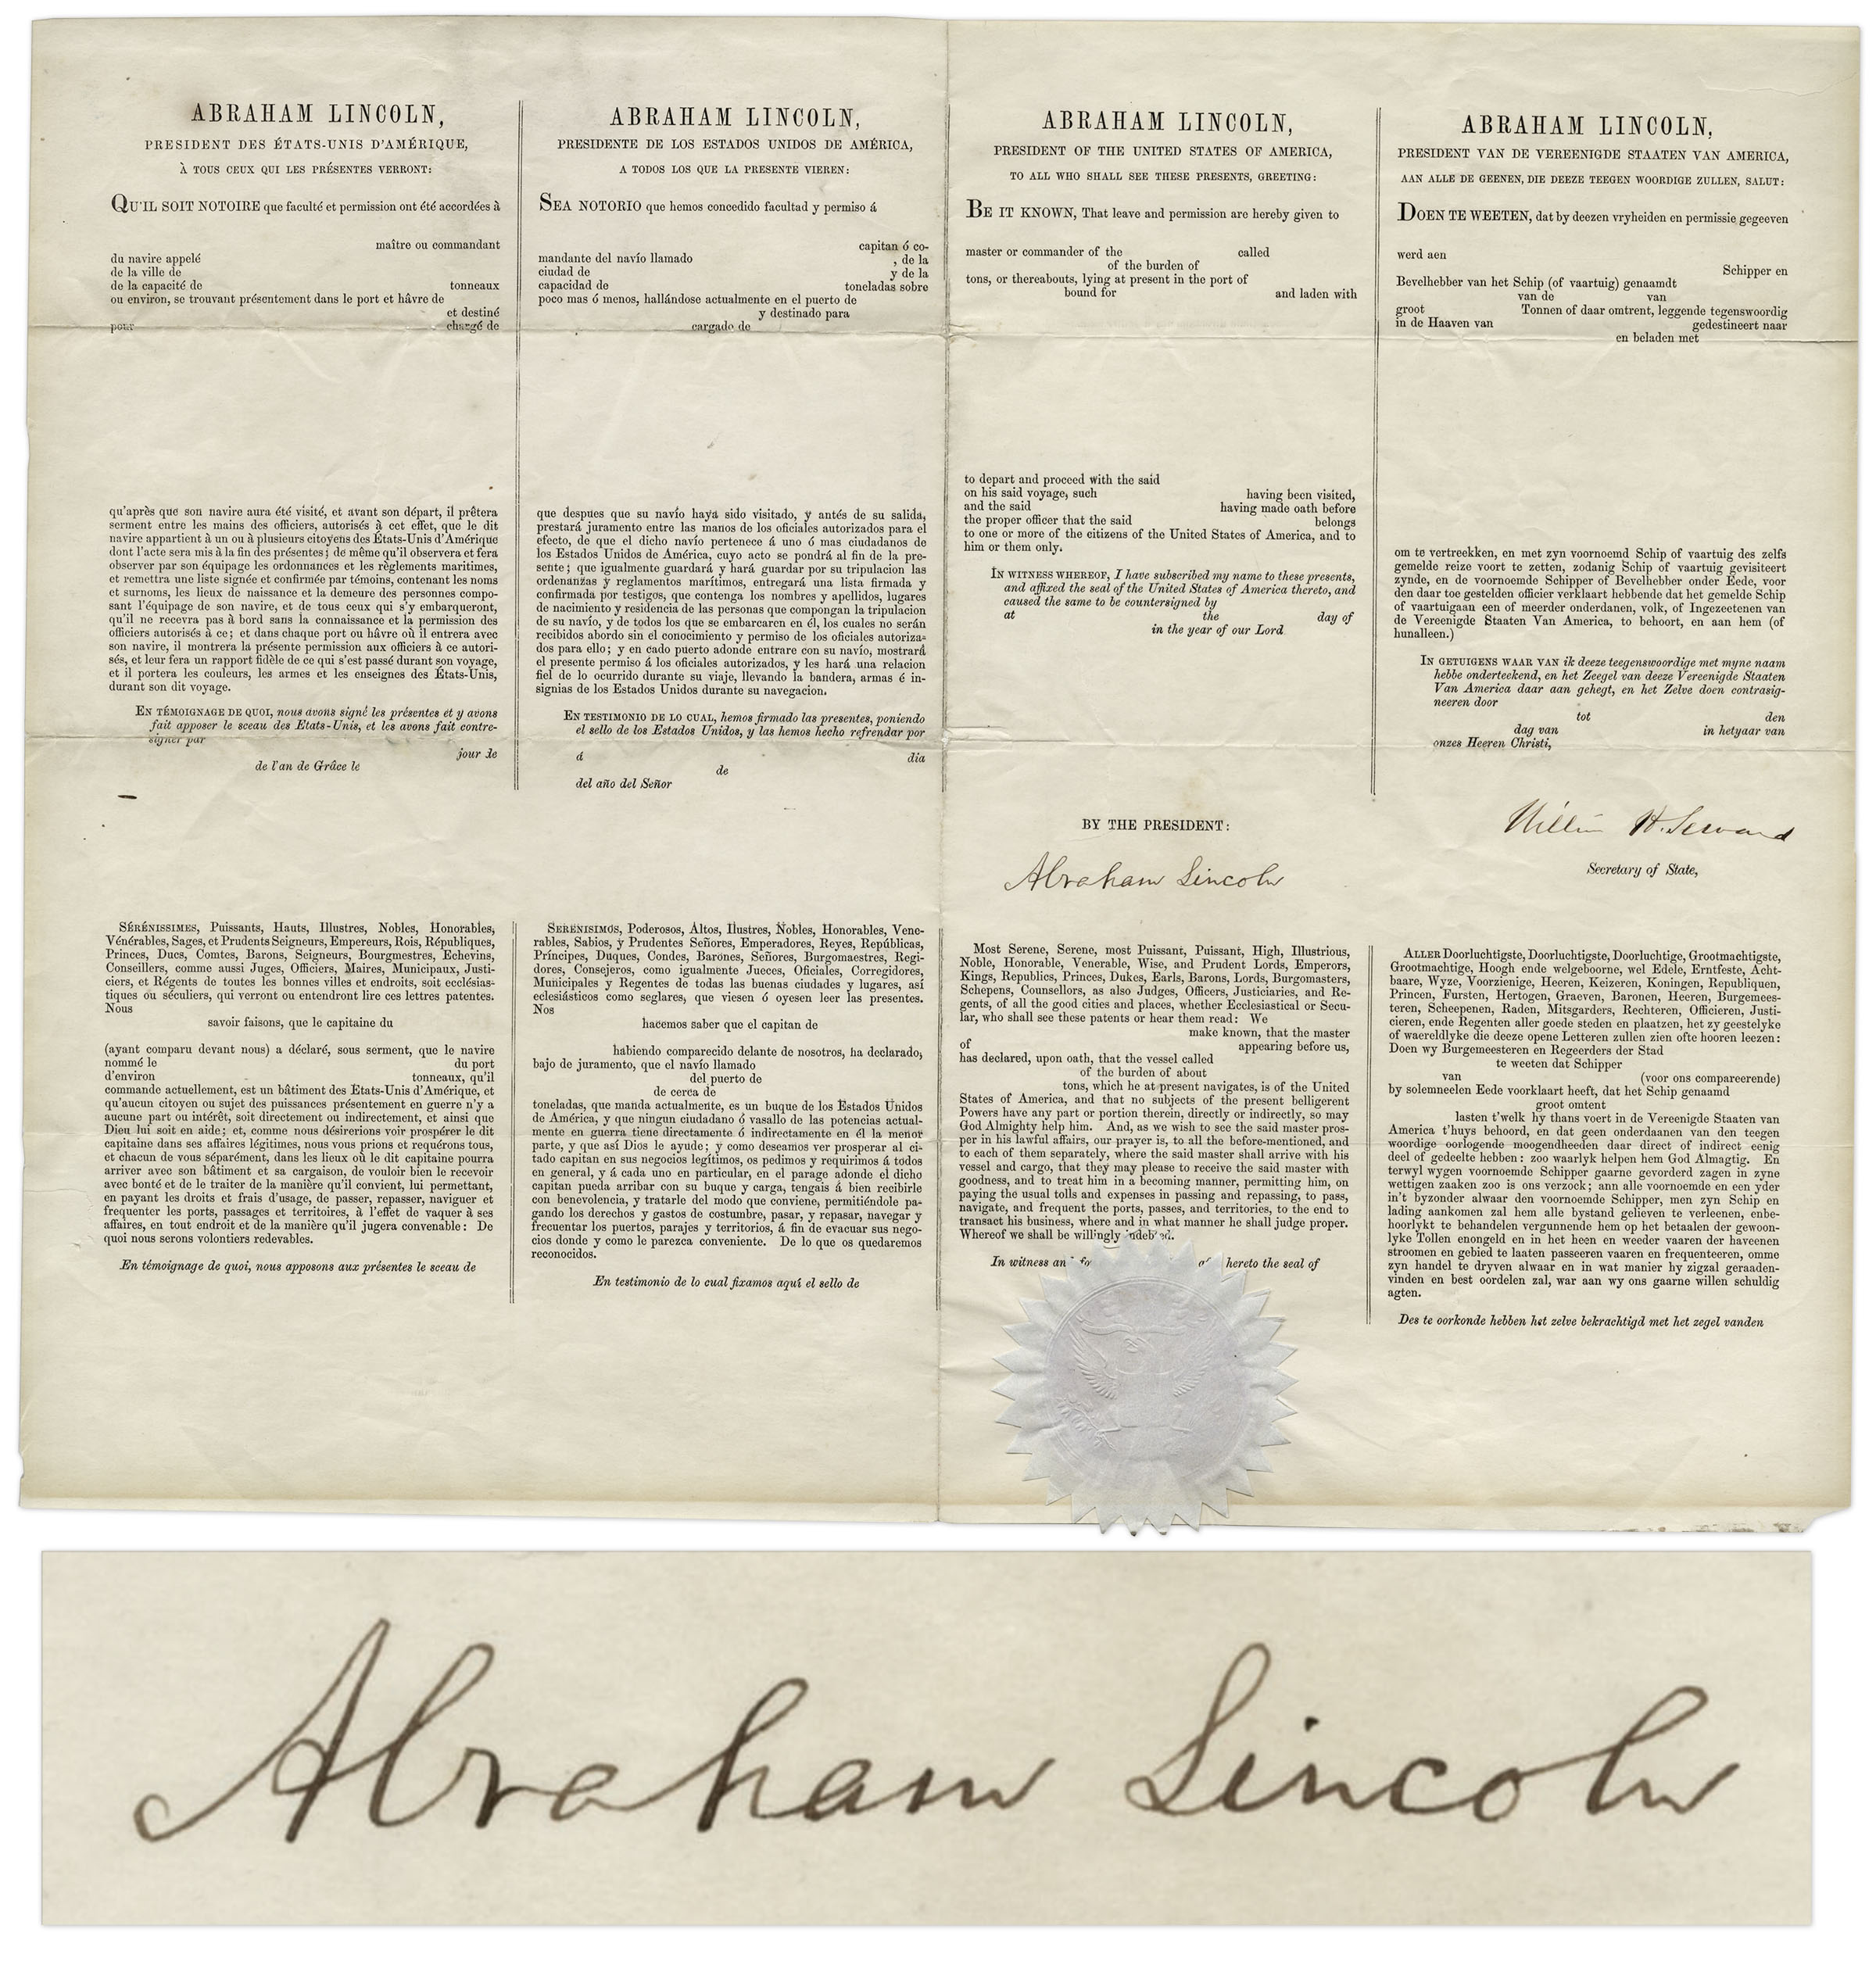 ABRAHAM LINCOLN,
PRESIDENT DES ÉTATS-UNIS D'AMÉRIQUE,
À TOUS CEUX QUI LES PRÉSENTES VERRONT:
QU'IL SOIT NOTOIRE que faculté et permission ont été accordées à
maître ou commandant
du navire appelé
de la ville de
de la capacité de tonneaux
ou environ, se trouvant présentement dans le port et hâvre de
et destiné
pour chargé de
qu'après que son navire aura été visité, et avant son départ, il prêtera
serment entre les mains des officiers, autorisés à cet effet, que le dit
navire appartient à un ou à plusieurs citoyens des États-Unis d'Amérique
dont l'acte sera mis à la fin des présentes; de même qu'il observera et fera
observer par son équipage les ordonnances et les règlements maritimes,
et remettra une liste signée et confirmée par témoins, contenant les noms
et surnoms, les lieux de naissance et la demeure des personnes compo-
sant l'équipage de son navire, et de tous ceux qui s'y embarqueront,
qu'il ne recevra pas à bord sans la connaissance et la permission des
officiers autorisés à ce; et dans chaque port ou hâvre où il entrera avec
son navire, il montrera la présente permission aux officiers à ce autori-
sés, et leur fera un rapport fidèle de ce qui s'est passé durant son voyage,
et il portera les couleurs, les armes et les enseignes des États-Unis,
durant son dit voyage.
EN TÉMOIGNAGE DE QUOI, nous avons signé les présentes et y avons
fait apposer le sceau des Etats-Unis, et les avons fait contre-
signer par
jour de
de l'an de Grâce le
ABRAHAM LINCOLN,
PRESIDENTE DE LOS ESTADOS UNIDOS DE AMÉRICA,
A TODOS LOS QUE LA PRESENTE VIEREN:
SEA NOTORIO que hemos concedido facultad y permiso á
capitan ó co-
mandante del navío llamado , de la
ciudad de y de la
capacidad de toneladas sobre
poco mas ó menos, hallándose actualmente en el puerto de
y destinado para
cargado de
que despues que su navío haya sido visitado, y ántes de su salida,
prestará juramento entre las manos de los oficiales autorizados para el
efecto, de que el dicho navío pertenece á uno ó mas ciudadanos de
los Estados Unidos de América, cuyo acto se pondrá al fin de la pre-
sente; que igualmente guardará y hará guardar por su tripulacion las
ordenanzas y reglamentos marítimos, entregará una lista firmada y
confirmada por testigos, que contenga los nombres y apellidos, lugares
de nacimiento y residencia de las personas que compongan la tripulacion
de su navío, y de todos los que se embarcaren en él, los cuales no serán
recibidos abordo sin el conocimiento y permiso de los oficiales autoriza-
dos para ello; y en cado puerto adonde entrare con su navío, mostrará
el presente permiso á los oficiales autorizados, y les hará una relacion
fiel de lo ocurrido durante su viaje, llevando la bandera, armas é in-
signias de los Estados Unidos durante su navegacion.
EN TESTIMONIO DE LO CUAL, hemos firmado las presentes, poniendo
el sello de los Estados Unidos, y las hemos hecho refrendar por
á dia
de
del año del Señor
ABRAHAM LINCOLN,
PRESIDENT OF THE UNITED STATES OF AMERICA,
TO ALL WHO SHALL SEE THESE PRESENTS, GREETING:
BE IT KNOWN, That leave and permission are hereby given to
master or commander of the called
of the burden of
tons, or thereabouts, lying at present in the port of
bound for and laden with
to depart and proceed with the said
on his said voyage, such having been visited,
and the said having made oath before
the proper officer that the said belongs
to one or more of the citizens of the United States of America, and to
him or them only.
IN WITNESS WHEREOF, I have subscribed my name to these presents,
and affixed the seal of the United States of America thereto, and
caused the same to be countersigned by
at the day of
in the year of our Lord
ABRAHAM LINCOLN,
PRESIDENT VAN DE VEREENIGDE STAATEN VAN AMERICA,
AAN ALLE DE GEENEN, DIE DEEZE TEEGEN WOORDIGE ZULLEN, SALUT:
DOEN TE WEETEN, dat by deezen vryheiden en permissie gegeeven
werd aen
Schipper en
Bevelhebber van het Schip (of vaartuig) genaamdt
van de van
groot Tonnen of daar omtrent, leggende tegenswoordig
in de Haaven van gedestineert naar
en beladen met
om te vertreekken, en met zyn voornoemd Schip of vaartuig des zelfs
gemelde reize voort te zetten, zodanig Schip of vaartuig gevisiteert
zynde, en de voornoemde Schipper of Bevelhebber onder Eede, voor
den daar toe gestelden officier verklaart hebbende dat het gemelde Schip
of vaartuigaan een of meerder onderdanen, volk, of Ingezeetenen van
de Vereenigde Staaten Van America, to behoort, en aan hem (of
hunalleen.)
IN GETUIGENS WAAR VAN ik deeze teegenswoordige met myne naam
hebbe onderteekend, en het Zeegel van deeze Vereenigde Staaten
Van America daar aan gehegt, en het Zelve doen contrasig-
neeren door
tot den
dag van in hetyaar van
onzes Heeren Christi,
BY THE PRESIDENT:
Abraham Lincoln
William H. Seward
Secretary of State,
SÉRÉNISSIMES, Puissants, Hauts, Illustres, Nobles, Honorables,
Vénérables, Sages, et Prudents Seigneurs, Empereurs, Rois, Républiques,
Princes, Ducs, Comtes, Barons, Seigneurs, Bourgmestres, Echevins,
Conseillers, comme aussi Juges, Officiers, Maires, Municipaux, Justi-
ciers, et Régents de toutes les bonnes villes et endroits, soit ecclésias-
tiques ou séculiers, qui verront ou entendront lire ces lettres patentes.
Nous
savoir faisons, que le capitaine du
(ayant comparu devant nous) a déclaré, sous serment, que le navire
nommé le du port
d'environ tonneaux, qu'il
commande actuellement, est un bâtiment des Etats-Unis d'Amérique, et
qu'aucun citoyen ou sujet des puissances présentement en guerre n'y a
aucune part ou intérêt, soit directement ou indirectement, et ainsi que
Dieu lui soit en aide; et, comme nous désirerions voir prospérer le dit
capitaine dans ses affaires légitimes, nous vous prions et requérons tous,
et chacun de vous séparément, dans les lieux où le dit capitaine pourra
arriver avec son bâtiment et sa cargaison, de vouloir bien le recevoir
avec bonté et de le traiter de la manière qu'il convient, lui permettant,
en payant les droits et frais d'usage, de passer, repasser, naviguer et
frequenter les ports, passages et territoires, à l'effet de vaquer à ses
affaires, en tout endroit et de la manière qu'il jugera convenable: De
quoi nous serons volontiers redevables.
En témoignage de quoi, nous apposons aux présentes le sceau de
SERENISIMOS, Poderosos, Altos, Ilustres, Nobles, Honorables, Vene-
rables, Sabios, y Prudentes Señores, Emperadores, Reyes, Repúblicas,
Príncipes, Duques, Condes, Barones, Señores, Burgomaestres, Regi-
dores, Consejeros, como igualmente Jueces, Oficiales, Corregidores,
Municipales y Regentes de todas las buenas ciudades y lugares, así
eclesiásticos como seglares, que viesen ó oyesen leer las presentes.
Nos
hacemos saber que el capitan de
habiendo comparecido delante de nosotros, ha declarado,
bajo de juramento, que el navío llamado
del puerto de
de cerca de
toneladas, que manda actualmente, es un buque de los Estados Unidos
de América, y que ningun ciudadano ó vasallo de las potencias actual-
mente en guerra tiene directamente ó indirectamente en él la menor
parte, y que así Dios le ayude; y como deseamos ver prosperar al ci-
tado capitan en sus negocios legítimos, os pedimos y requirimos á todos
en general, y á cada uno en particular, en el parage adonde el dicho
capitan pueda arribar con su buque y carga, tengais á bien recibirle
con benevolencia, y tratarle del modo que conviene, permitiéndole pa-
gando los derechos y gastos de costumbre, pasar, y repasar, navegar y
frecuentar los puertos, parajes y territorios, á fin de evacuar sus nego-
cios donde y como le parezca conveniente. De lo que os quedaremos
reconocidos.
En testimonio de lo cual fixamos aquí el sello de
Most Serene, Serene, most Puissant, Puissant, High, Illustrious,
Noble, Honorable, Venerable, Wise, and Prudent Lords, Emperors,
Kings, Republics, Princes, Dukes, Earls, Barons, Lords, Burgomasters,
Schepens, Counsellors, as also Judges, Officers, Justiciaries, and Re-
gents, of all the good cities and places, whether Ecclesiastical or Secu-
lar, who shall see these patents or hear them read: We
make known, that the master
of appearing before us,
has declared, upon oath, that the vessel called
of the burden of about
tons, which he at present navigates, is of the United
States of America, and that no subjects of the present belligerent
Powers have any part or portion therein, directly or indirectly, so may
God Almighty help him. And, as we wish to see the said master pros-
per in his lawful affairs, our prayer is, to all the before-mentioned, and
to each of them separately, where the said master shall arrive with his
vessel and cargo, that they may please to receive the said master with
goodness, and to treat him in a becoming manner, permitting him, on
paying the usual tolls and expenses in passing and repassing, to pass,
navigate, and frequent the ports, passes, and territories, to the end to
transact his business, where and in what manner he shall judge proper.
Whereof we shall be willingly indebted.
In witness hereto the seal of
ALLER Doorluchtigste, Doorluchtigste, Doorluchtige, Grootmachtigste,
Grootmachtige, Hoogh ende welgeboorne, wel Edele, Erntfeste, Acht-
baare, Wyze, Voorzienige, Heeren, Keizeren, Koningen, Republiquen,
Princen, Fursten, Hertogen, Graeven, Baronen, Heeren, Burgemees-
teren, Scheepenen, Raden, Mitsgarders, Rechteren, Officieren, Justi-
cieren, ende Regenten aller goede steden en plaatzen, het zy geestelyke
of waereldlyke die deeze opene Letteren zullen zien ofte hooren leezen:
Doen wy Burgemeesteren en Regeerders der Stad
te weeten dat Schipper
van (voor ons compareerende)
by solemneelen Eede voorklaart heeft, dat het Schip genaamd
groot omtent
lasten t'welk hy thans voert in de Vereenigde Staaten van
America t'huys behoord, en dat geen onderdaanen van den teegen
woordige oorlogende moogendheeden daar direct of indirect eenig
deel of gedeelte hebben: zoo waarlyk helpen hem God Almagtig. En
terwyl wygen voornoemde Schipper gaarne gevorderd zagen in zyne
wettigen zaaken zoo is ons verzock; ann alle voornoemde en een yder
in't byzonder alwaar den voornoemde Schipper, men zyn Schip en
lading aankomen zal hem alle bystand gelieven te verleenen, enbe-
hoorlykt te behandelen vergunnende hem op het betaalen der gewoon-
lyke Tollen enongeld en in het heen en weeder vaaren der haveenen
stroomen en gebied te laaten passeeren vaaren en frequenteeren, omme
zyn handel te dryven alwaar en in wat manier hy zigzal geraaden-
vinden en best oordelen zal, war aan wy ons gaarne willen schuldig
agten.
Des te oorkonde hebben het zelve bekrachtigd met het zegel vanden
Abraham Lincoln